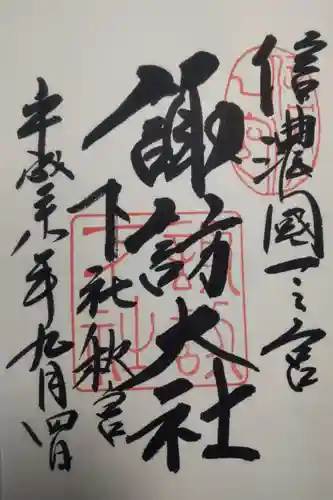 信濃國一之宮
諏訪大社
下社秋宮
平成廿八年九月四日